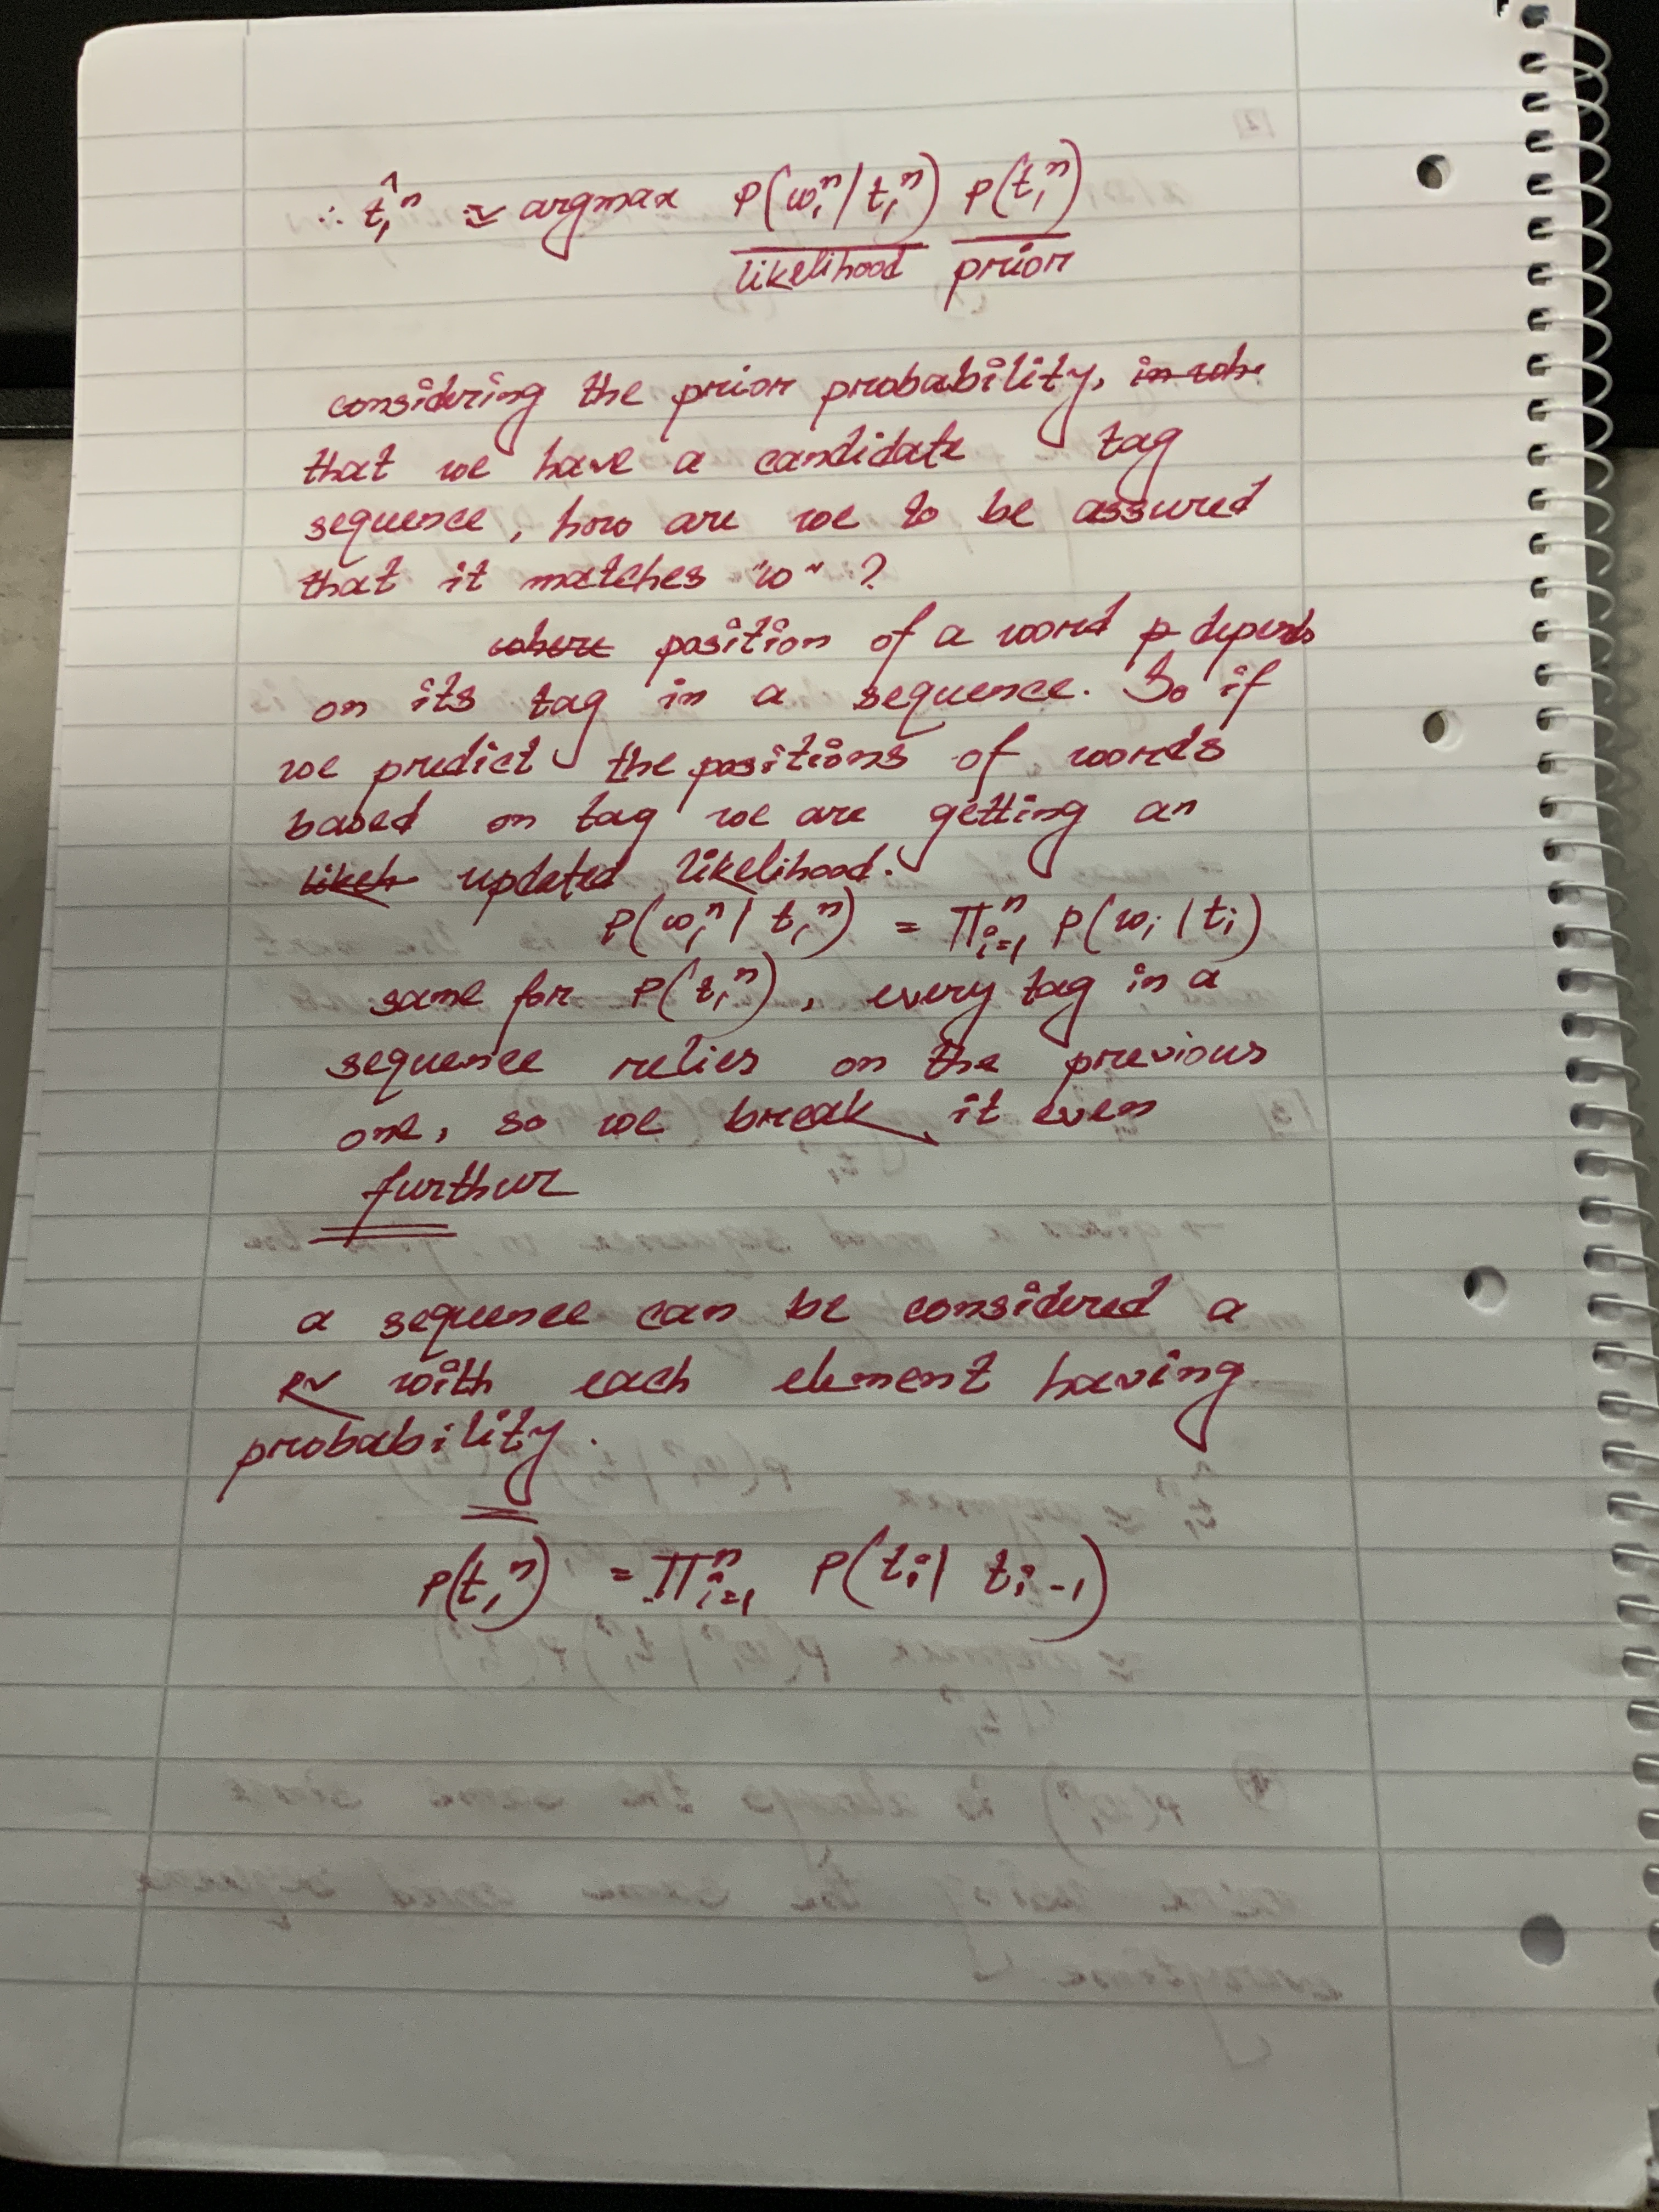 ∴ t̂₁ⁿ ≃ argmax P(w₁ⁿ/t₁ⁿ) P(t₁ⁿ)
likelihood prior
considering the prior probability,
that we have a candidate tag
sequence, how are we to be assured
that it matches "w"?
where position of a word p depends
on its tag in a sequence. So if
we predict the positions of words
based on tag we are getting an
likeh updated likelihood.
P(w₁ⁿ| t₁ⁿ) = Πⁿᵢ₌₁ P(wᵢ | tᵢ)
same for P(t₁ⁿ), every tag in a
sequence relies on the previous
one, so we break it even
furthur
a sequence can be considered a
RV with each element having
probability.
P(t₁ⁿ) = Πⁿᵢ₌₁ P(tᵢ| tᵢ₋₁)